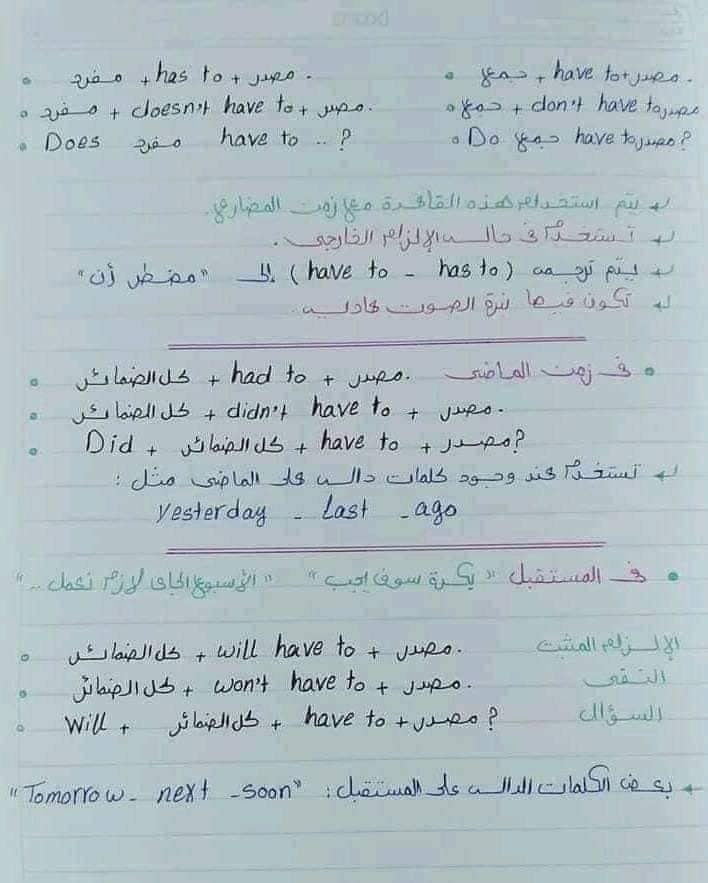 مفرد + has to + مصدر.
جمع + have to + مصدر.
مفرد + doesn't have to + مصدر.
جمع + don't have to مصدر
Does مفرد have to .. ?
Do جمع have to مصدر?
يتم استخدام هذه القاعدة مع زمن المضارع.
تستخدم في حالة الإلزام الخارجي.
يتم ترجمة (have to - has to) إلى "مضطر أن"
تكون فيها نبرة الصوت هادية.
في زمن الماضى
كل الضمائر + had to + مصدر.
كل الضمائر + didn't have to + مصدر.
Did + كل الضمائر + have to + مصدر?
تستخدم عند وجود كلمات دالة على الماضى مثل :
yesterday - Last - ago
في المستقبل "بكرة سوف يجب" "الأسبوع الجاى لازم نعمل .."
الإلزام المثبت
كل الضمائر + will have to + مصدر.
النفى
كل الضمائر + won't have to + مصدر.
السؤال
Will + كل الضمائر + have to + مصدر ?
بعض الكلمات الدالة على المستقبل: "Tomorrow - next - soon"